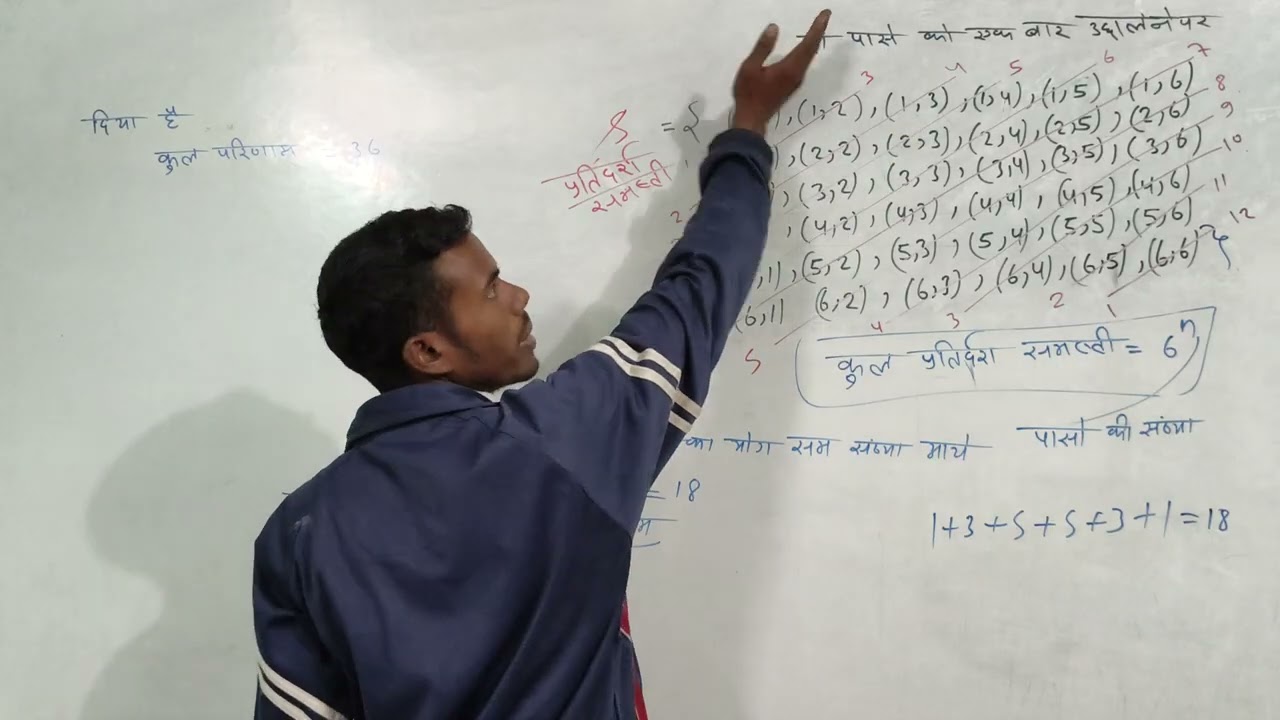 पासे को एक बार उछालने पर
3 4 5 6 7
दिया है
कुल परिणाम = 36
S = { , (1,2), (1,3), (1,4), (1,5), (1,6) 8
प्रतिदर्श
समष्टी
1 ), (2,2), (2,3), (2,4), (2,5), (2,6) 9
2 , (3,2), (3,3), (3,4), (3,5), (3,6) 10
, (4,2), (4,3), (4,4), (4,5), (4,6) 11
,1), (5,2), (5,3), (5,4), (5,5), (5,6) 12
(6,1) (6,2), (6,3), (6,4), (6,5), (6,6) }
5 4 3 2 1
कुल प्रतिर्दश समष्टी = 6ⁿ
का योग सम संख्या माये पासो की संख्या
= 18
1+3+5+5+3+1=18